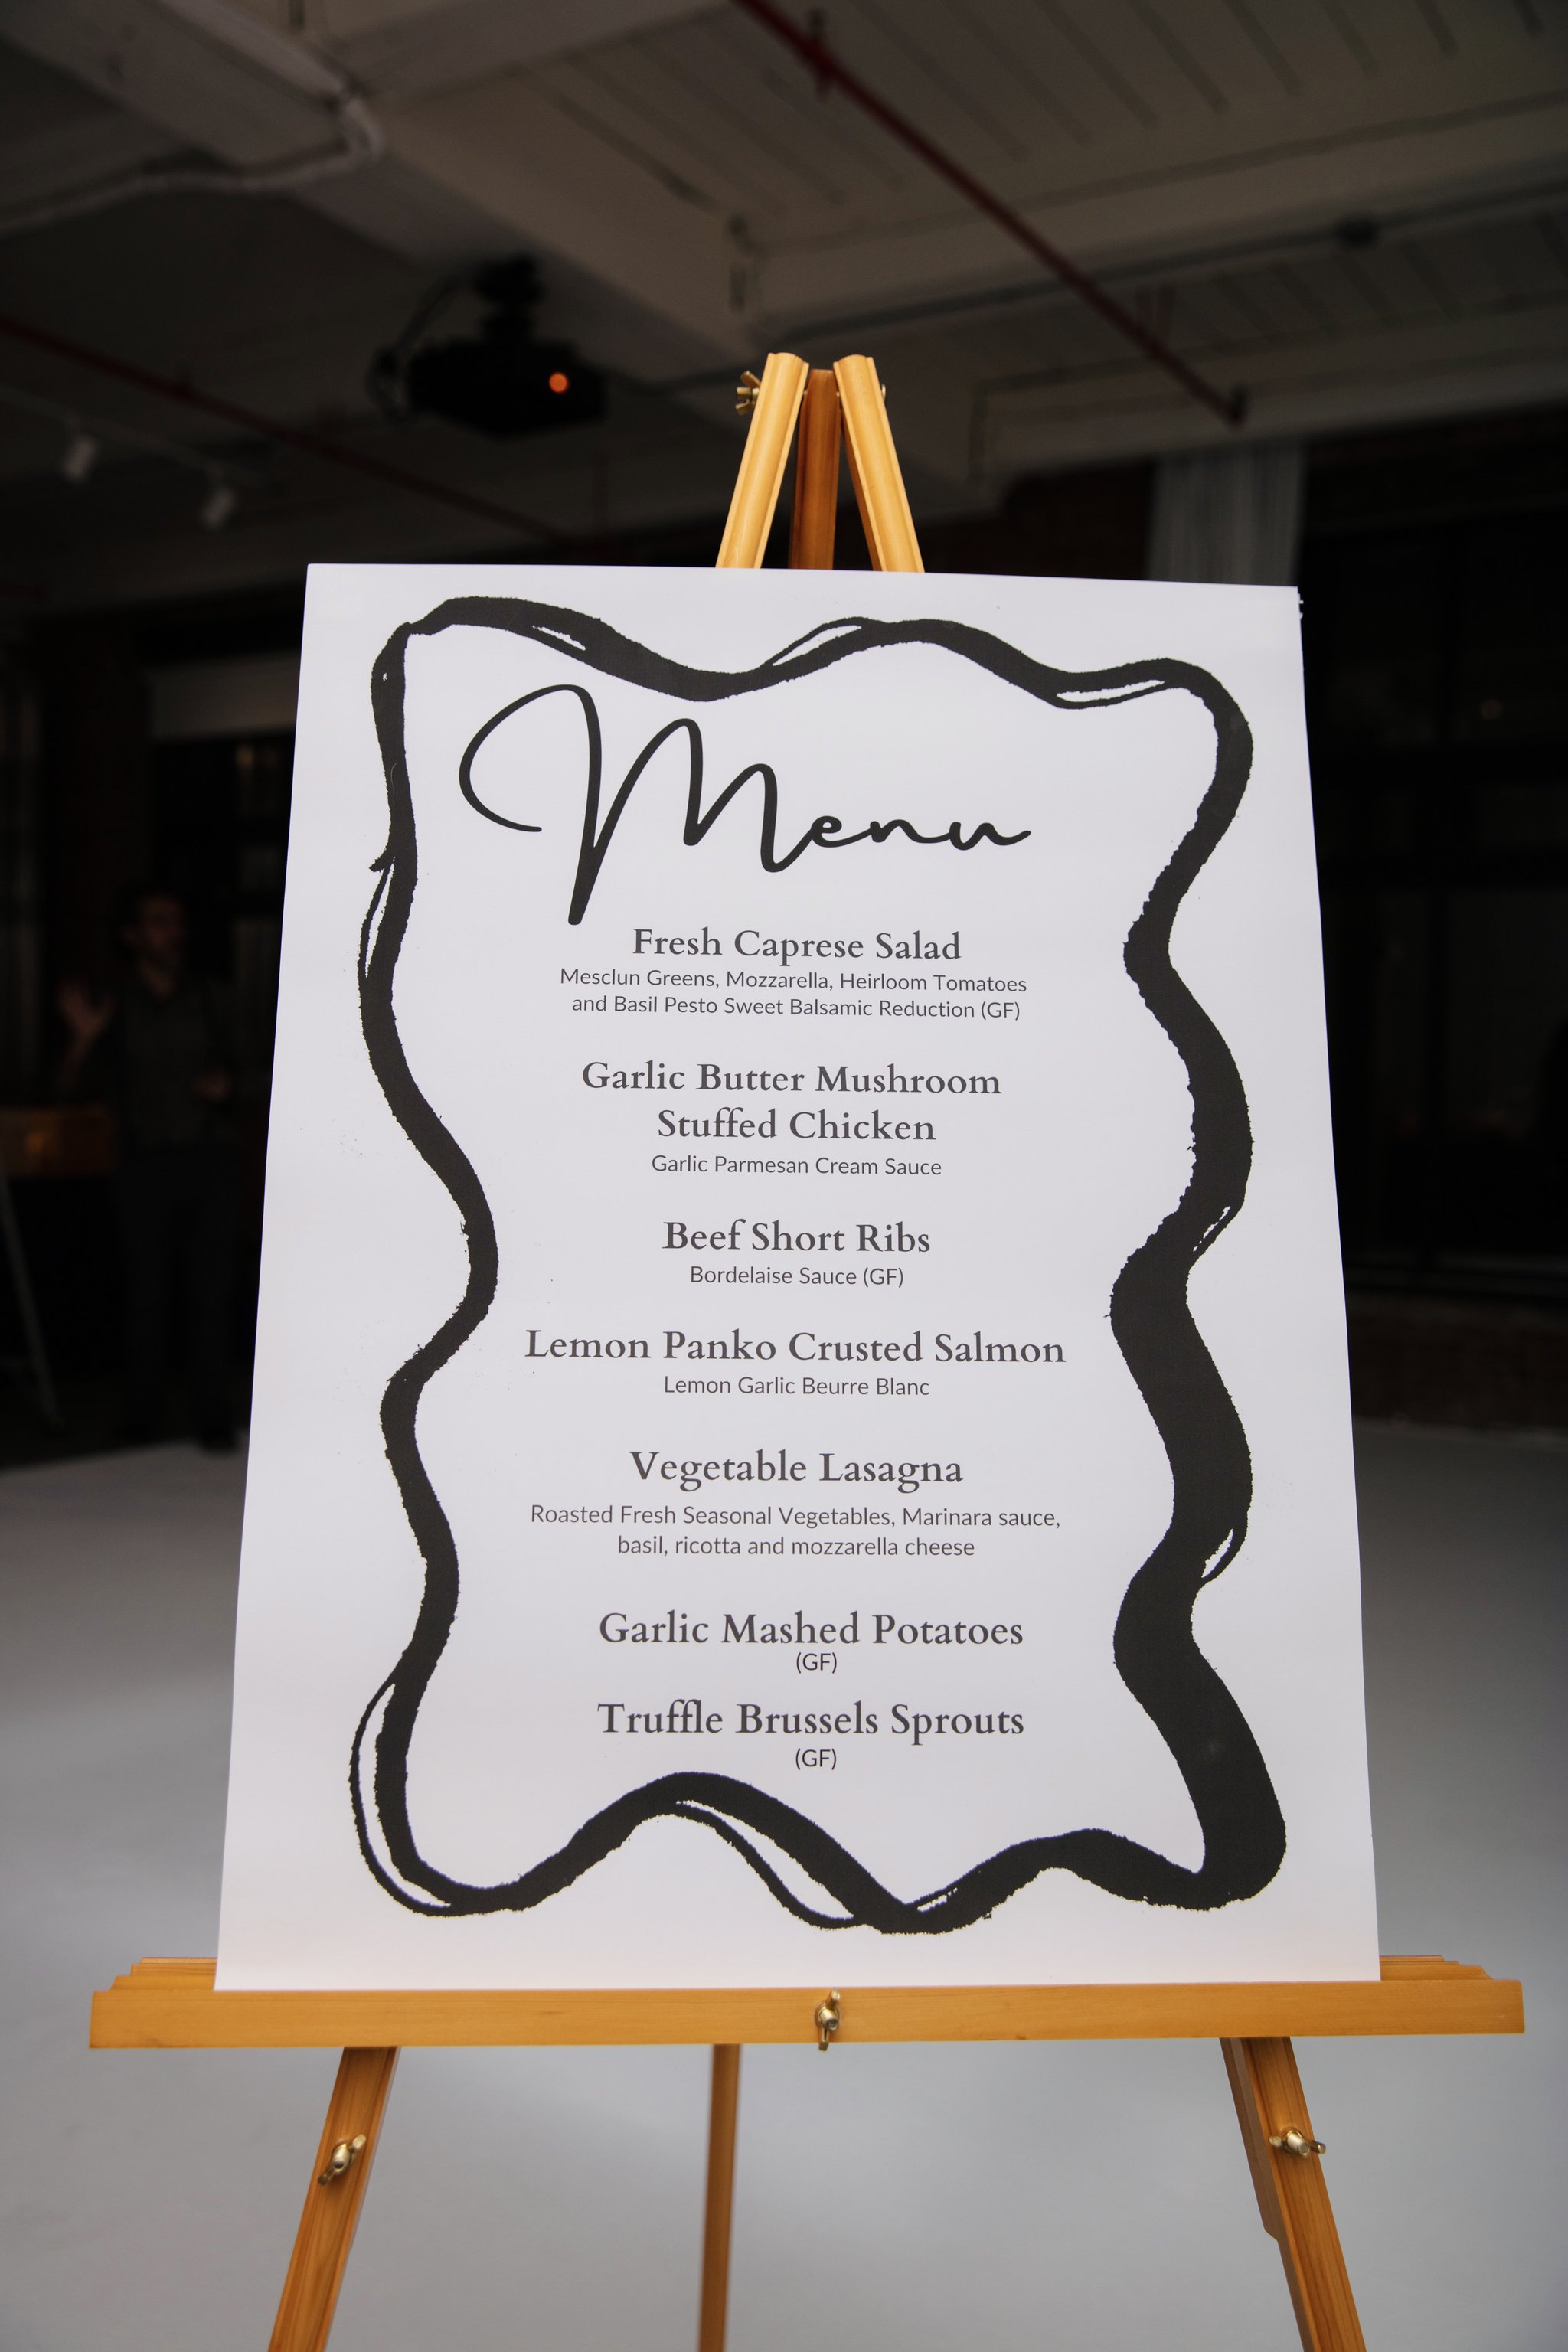 Menu
Fresh Caprese Salad
Mesclun Greens, Mozzarella, Heirloom Tomatoes
and Basil Pesto Sweet Balsamic Reduction (GF)
Garlic Butter Mushroom
Stuffed Chicken
Garlic Parmesan Cream Sauce
Beef Short Ribs
Bordelaise Sauce (GF)
Lemon Panko Crusted Salmon
Lemon Garlic Beurre Blanc
Vegetable Lasagna
Roasted Fresh Seasonal Vegetables, Marinara sauce,
basil, ricotta and mozzarella cheese
Garlic Mashed Potatoes
(GF)
Truffle Brussels Sprouts
(GF)